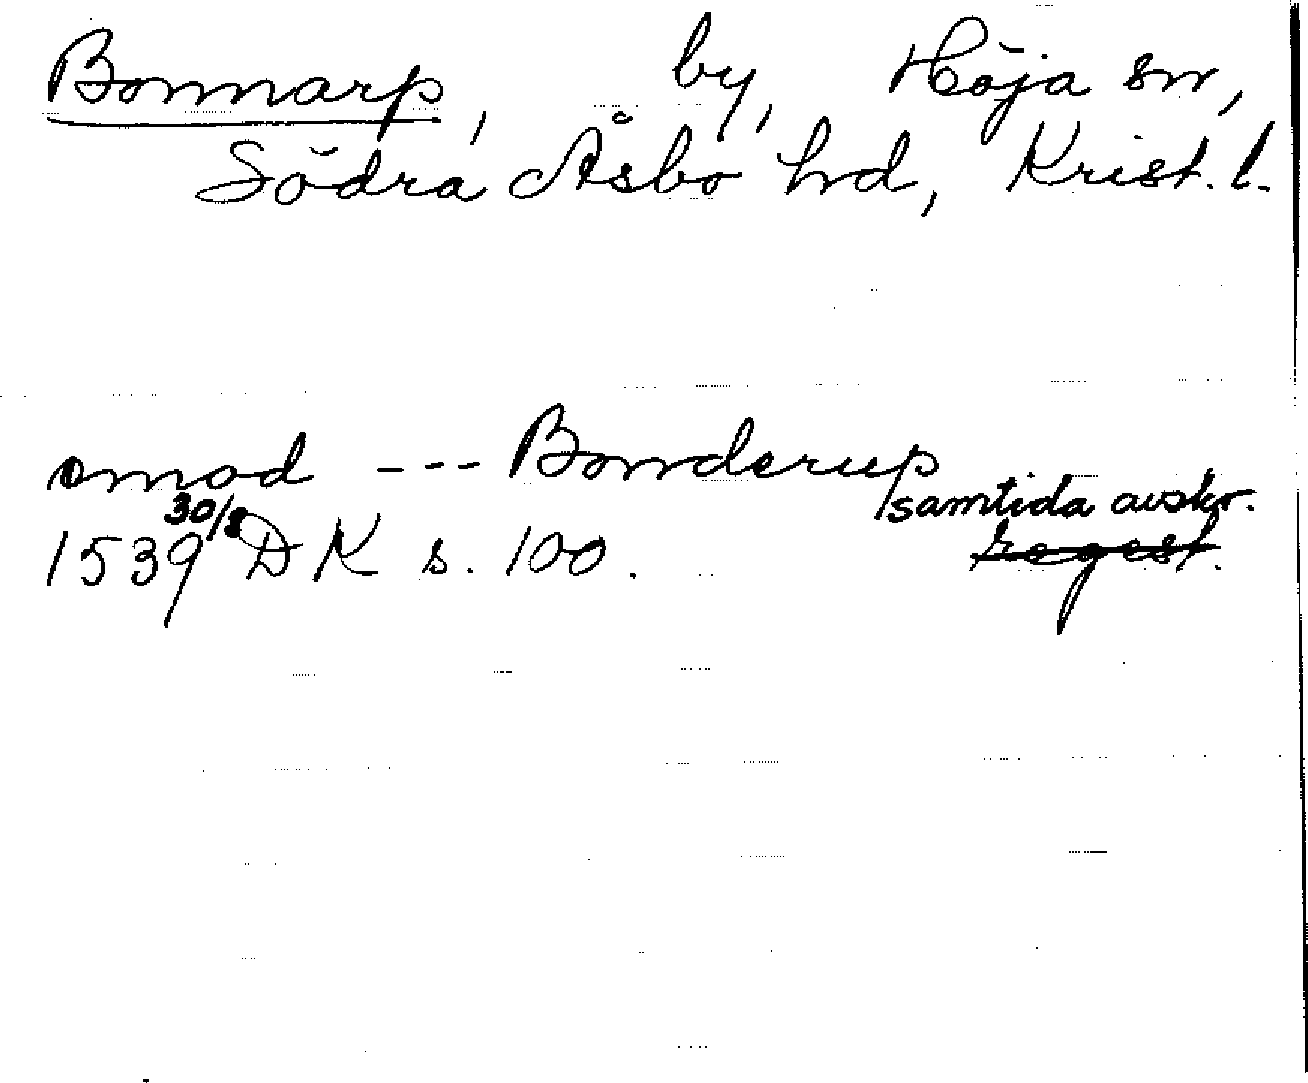 Bonnarp, by, Höja sn,
Södra Åsbo hd, Krist. l.
emod --- Bonderup
samtida avskr.
1539 30/8 DK s. 100. regest.